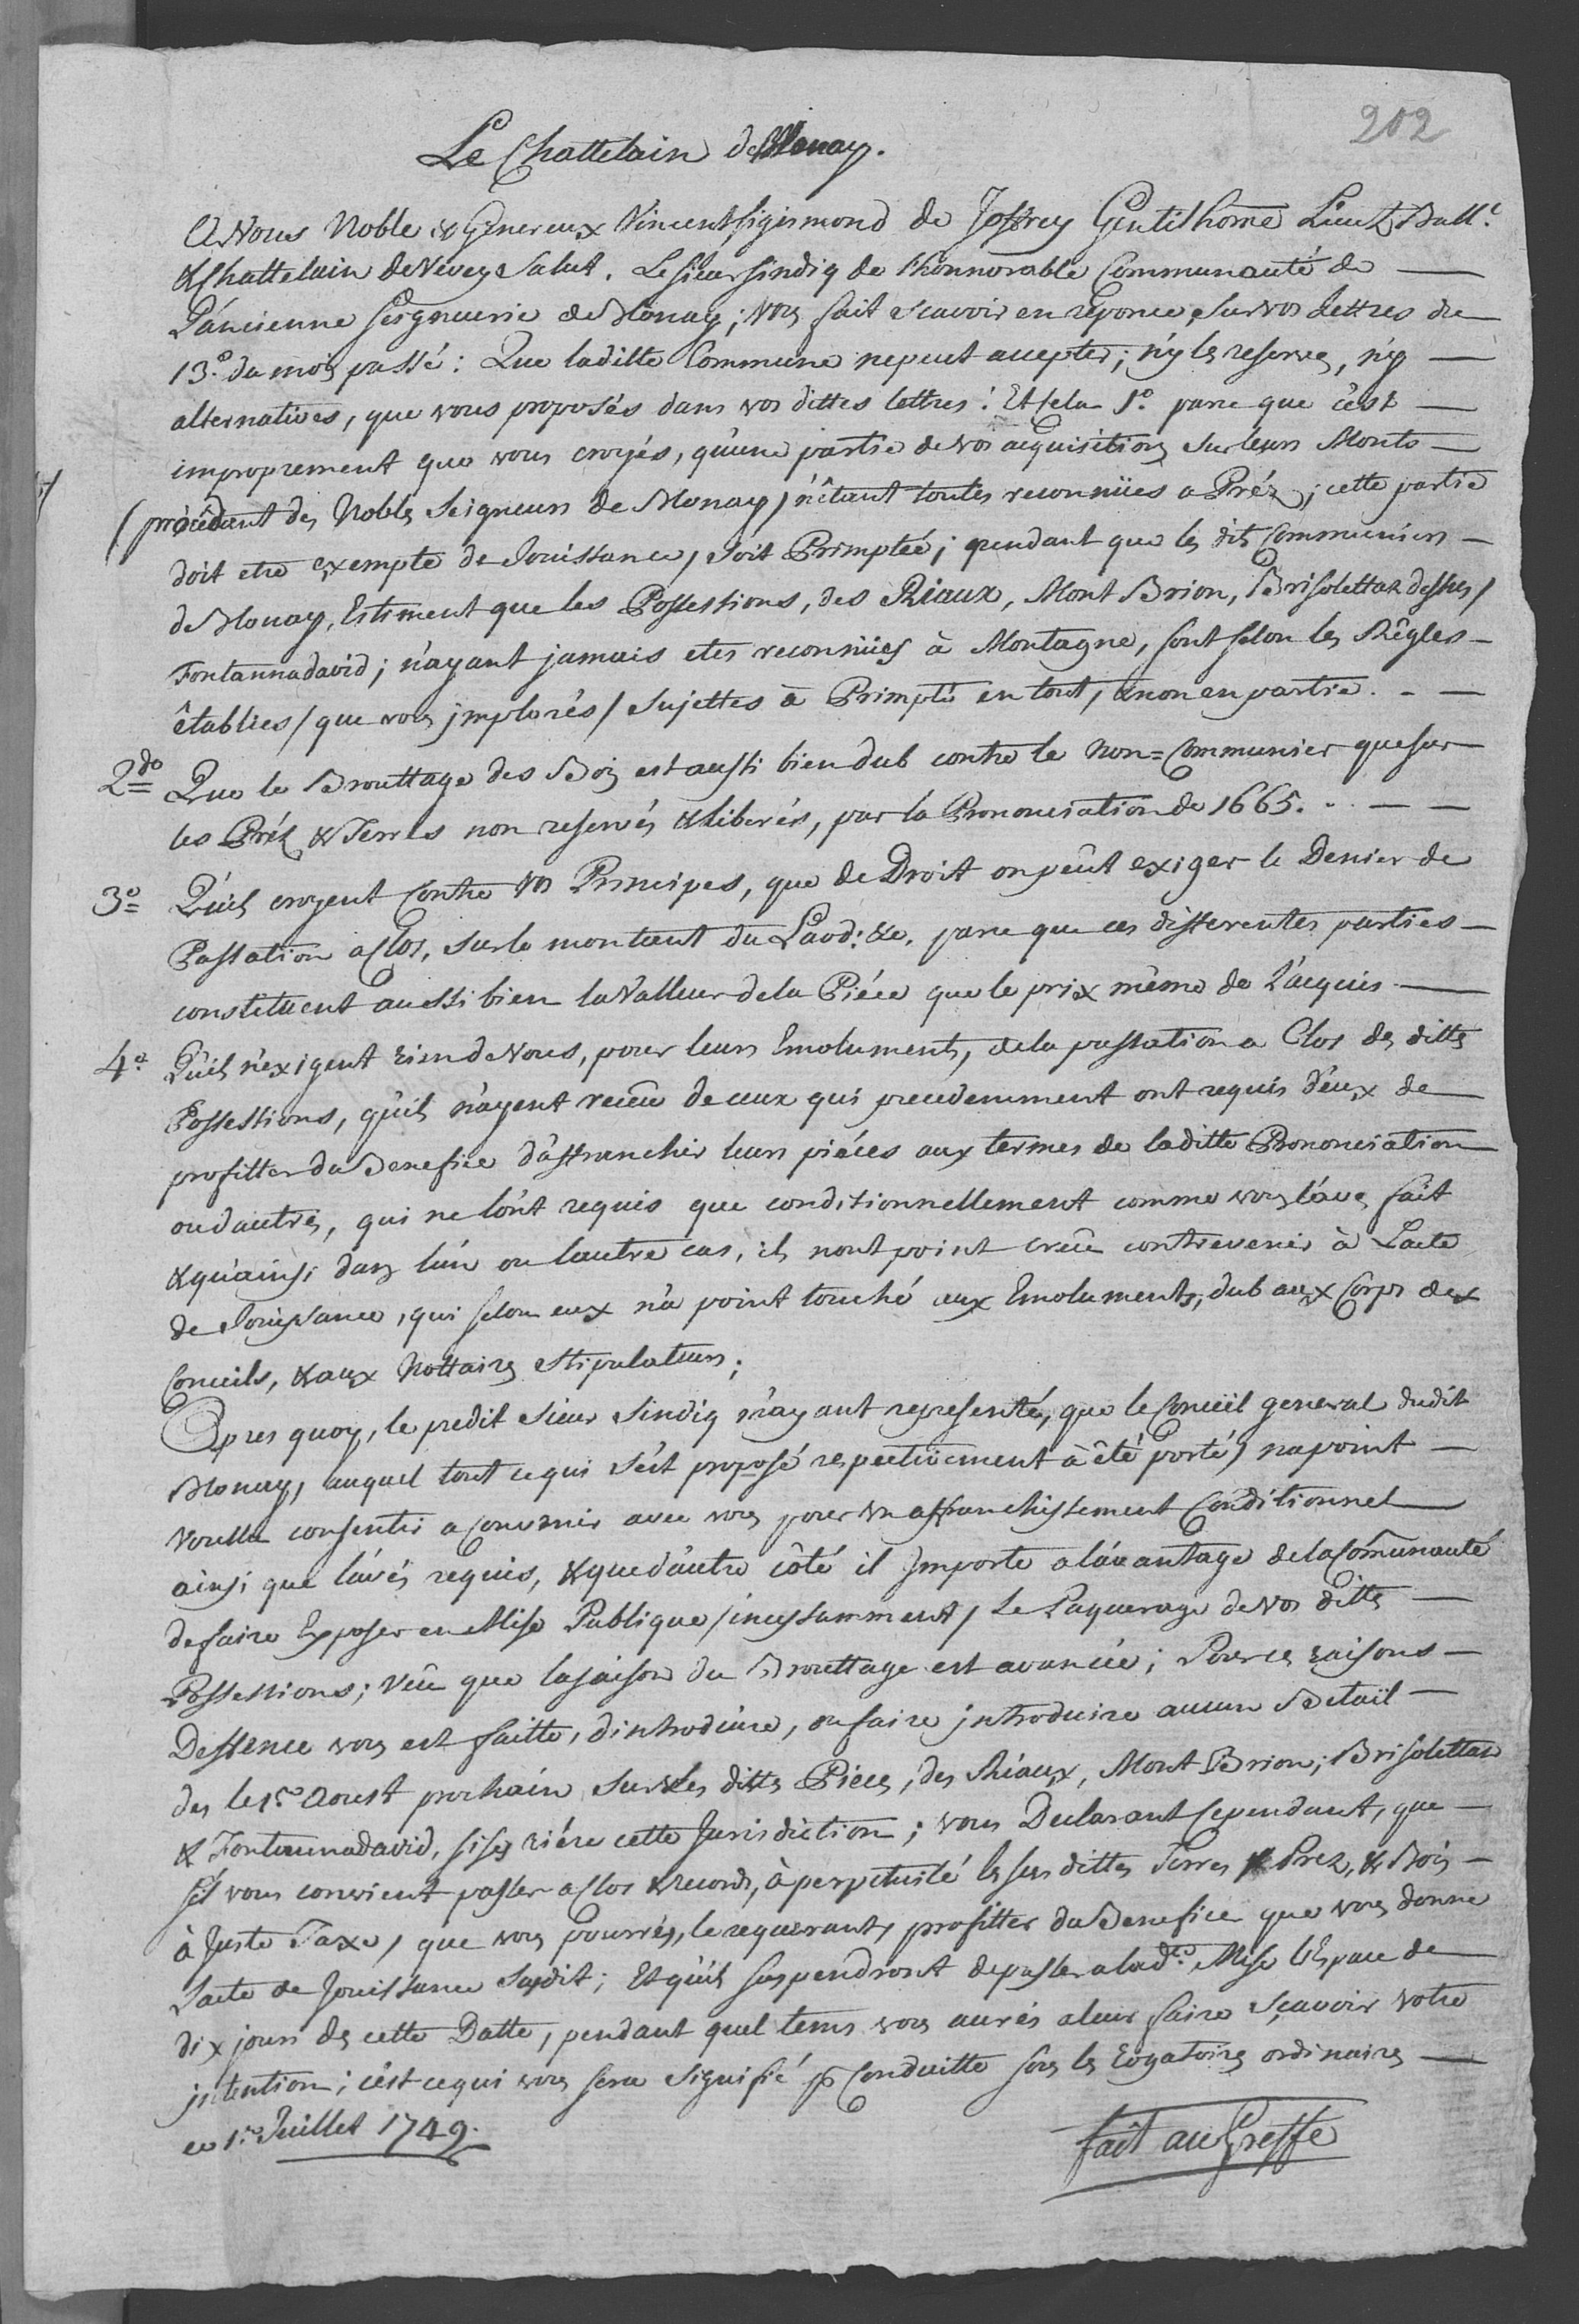 202
Le Chattelain de Blonay.
A Vous Noble & Genereux Vincent Sigismond de Joffrey Gentilhome Lieut. Ball.
& Chattelain de Vevey Salut. Le sieur sindiq de l'honnorable Communauté de —
l'ancienne seigneurie de Blonay; vous fait scavoir en réponce, sur vos lettres du —
13.e du mois passé: Que laditte Commune ne peut accepter; n'y les reserves, n'y —
alternatives, que vous proposés dans vos dittes lettres: Et cela 1.o parce que c'est —
improprement que vous croyés, qu'une partie de vos acquisitions sur leurs Monts —
(procédant des Nobles Seigneurs de Blonay) n'êtant toutes reconnües a Préz; cette partie
doit etre exempte de Jouissance, soit Primptée; pendant que les dits Communiers —
de Blonay, Estiment que les Possessions, des Riaux, Mont Brion, Brisolettaz dessus,
Fontannadavid; n'ayant jamais etes reconnües à Montagne, sont selon les Règles —
êtablies / que vous implorés / sujettes à Primpté en tout, & non en partie. - —
2.do Que le Brouttage des Bois est aussi bien dub contre le Non=Communier que sur —
les Préz & Terres non reservés & liberés, par la Prononciation de 1665. - — —
3.o Qu'ils croyent contre vos Principes, que de Droit on peût exiger le Denier de
Passation a Clos, sur le montant du Laod: &c. parce que ces differentes parties —
constituent aussi bien la Valleur de la Piéce que le prix même de l'acquis —
4.o Qu'ils n'exigent rien de Vous, pour leurs Emoluments, de la passation a Clos des dittes
Possessions, qu'ils n'ayent receu de ceux qui precedemment ont requis d'eux de —
profitter du Benefice d'affranchir leurs piéces aux termes de laditte Prononciation
ou d'autres, qui ne l'ont requis que conditionnellement comme vous l'avés fait
& qu'ainsi dans l'un ou l'autre cas, ils n'ont point creû contrevenir à L'acte
de Jouissance, qui selon eux n'a point touché aux Emoluments, dub aux Corps des
Conceils, & aux Nottaires Stipulateurs;
Apres quoy, le predit sieur sindiq m'ayant representé, que le Conceil general dudit
Blonay, auquel tout ce qui s'est proposé respectivement à été porté, n'a point —
voullu consentir a convenir avec vous pour un affranchissement Conditionnel
ainsi que l'avés requis, & que d'autre côté il importe a l'avantage de la Comunauté
de faire Exposer en Mise Publique / incessamment / Le Paquerage de vos dittes —
Possessions; veû que la saison du Brouttage est avancée; Pour ces raisons —
Deffence vous est faitte, d'introduire, ou faire introduire aucun Betail —
des le 1.er Aoust prochain sur les dittes Pieces, des Riaux, Mont Brion, Brisolettaz
& Fontannadavid, sises riére cette Jurisdiction; vous Declarant cependant, que —
s'il vous convient passer a Clos & records, à perpetuité les sus dittes Terres & Prez, & Bois —
à Juste Taxe, que vous pourrés, le requerant, profitter du Benefice que vous donne
l'acte de Jouissance susdit; Et qu'ils suspendront de passer a lad.te Mise l'Espace de —
dix jours des cette Datte, pendant quel tems vous aurés a leur faire scavoir votre
intention; c'est ce qui vous sera signifié p Conduitte sous les Rogatoires ordinaires —
ce 1.er Juillet 1749.
fait au Greffe